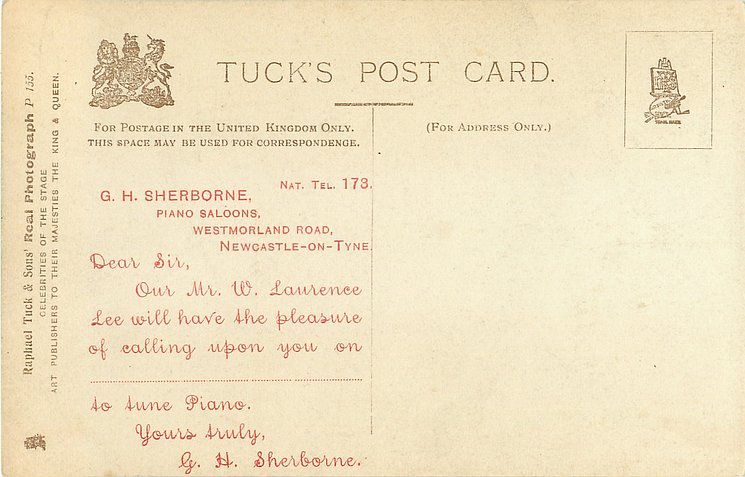 TUCK'S POST CARD.
FOR POSTAGE IN THE UNITED KINGDOM ONLY.
THIS SPACE MAY BE USED FOR CORRESPONDENCE.
(FOR ADDRESS ONLY.)
NAT. TEL. 173.
G. H. SHERBORNE,
PIANO SALOONS,
WESTMORLAND ROAD,
NEWCASTLE-ON-TYNE.
Dear Sir,
Our Mr. W. Laurence
Lee will have the pleasure
of calling upon you on
to tune Piano.
Yours truly,
G. H. Sherborne.
Raphael Tuck & Sons' Real Photograph P 155.
CELEBRITIES OF THE STAGE
ART PUBLISHERS TO THEIR MAJESTIES THE KING & QUEEN.